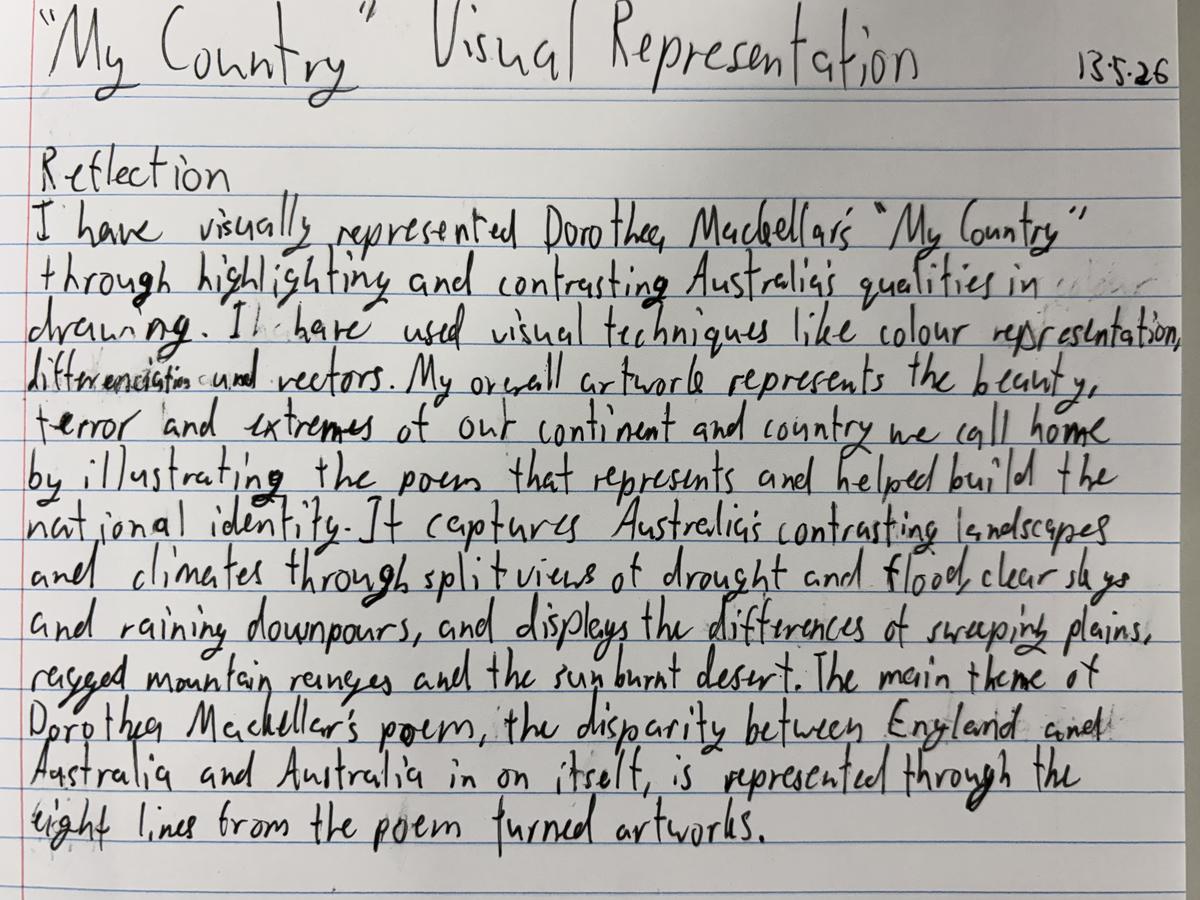 "My Country" Visual Representation
13.5.26
Reflection
I have visually represented Dorothea Mackellar's "My Country"
through highlighting and contrasting Australia's qualities in
drawing. I have used visual techniques like colour representation,
differenciation and vectors. My overall artwork represents the beauty,
terror and extremes of our continent and country we call home
by illustrating the poem that represents and helped build the
national identity. It captures Australia's contrasting landscapes
and climates through split views of drought and flood, clear skys
and raining downpours, and displays the differences of sweeping plains,
ragged mountain ranges and the sunburnt desert. The main theme of
Dorothea Mackellar's poem, the disparity between England and
Australia and Australia in on itself, is represented through the
eight lines from the poem turned artworks.